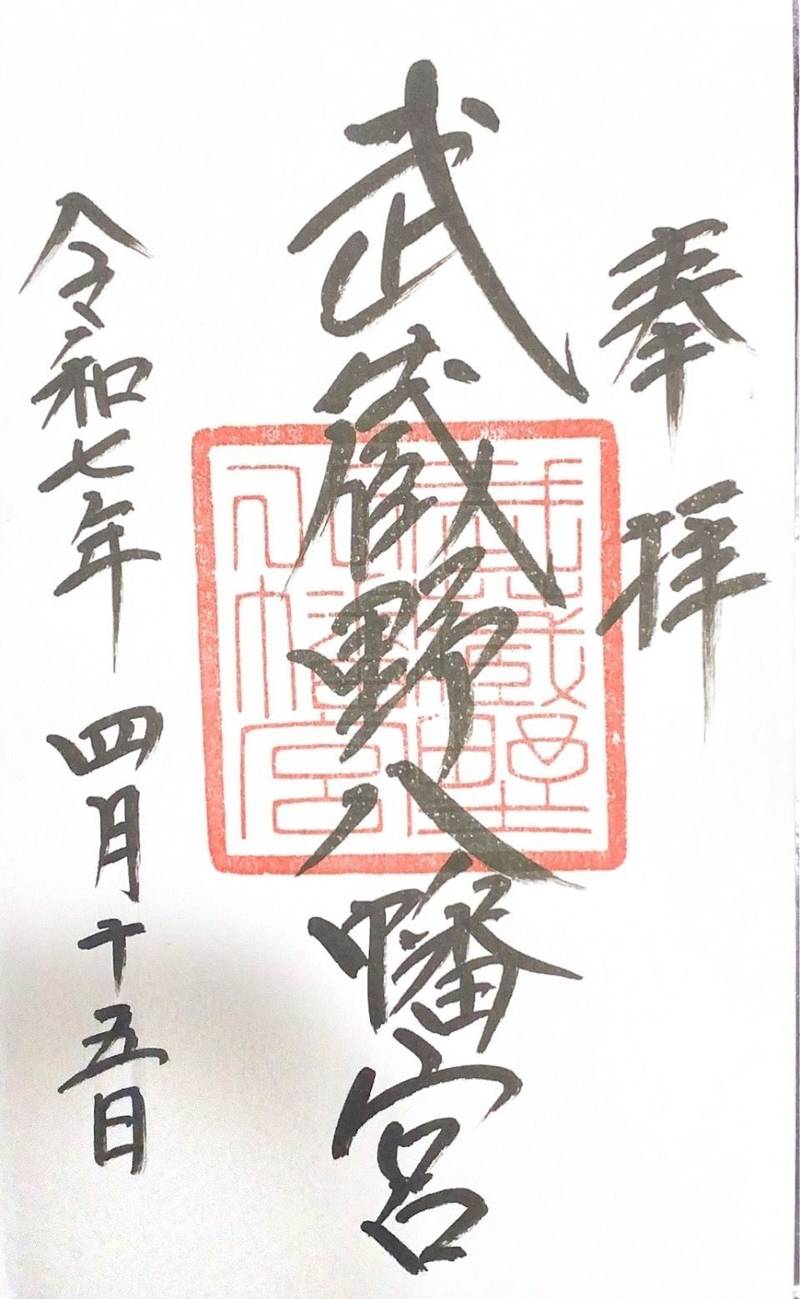 奉拝
武蔵野八幡宮
武蔵野
八幡宮
令和七年 四月十五日